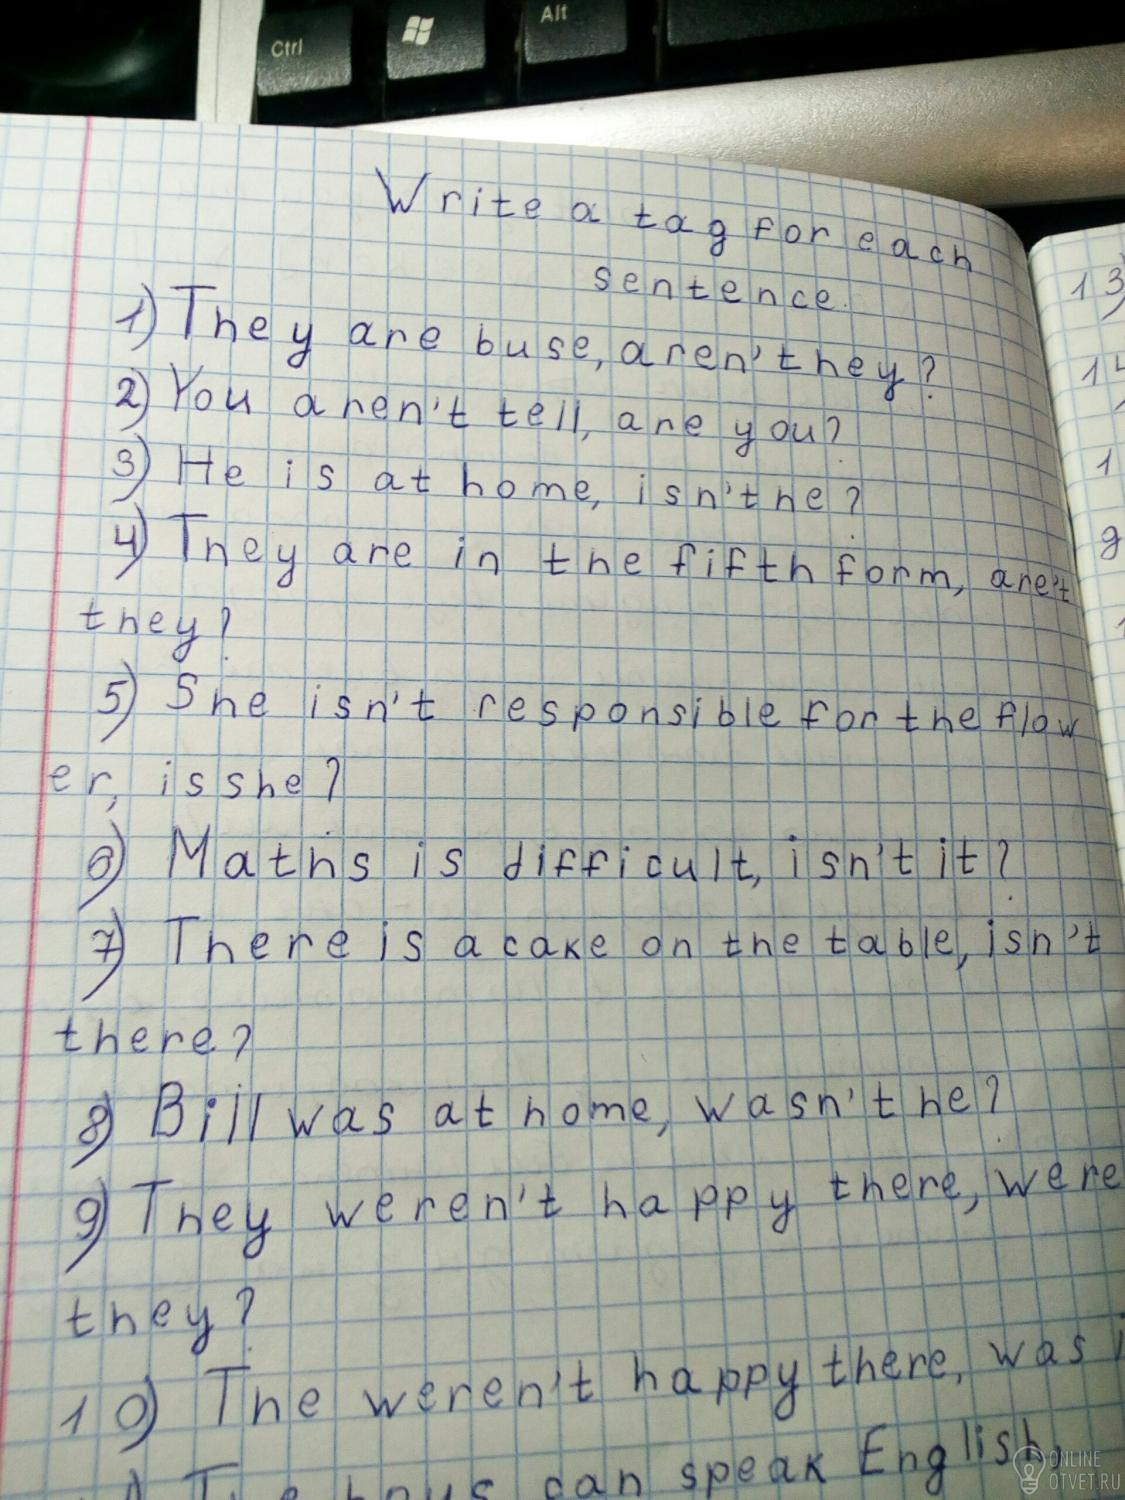 Ctrl
Alt
Write a tag for each
sentence.
1) They are buse, aren't they?
2) You aren't tell, are you?
3) He is at home, isn't he?
4) They are in the fifth form, are't
they?
5) She isn't responsible for the flow
er, is she?
6) Maths is difficult, isn't it?
7) There is a cake on the table, isn't
there?
8) Bill was at home, wasn't he?
9) They weren't happy there, were
they?
10) The weren't happy there, was
can speak English,
13)
1
g
ONLINE
OTVET.RU